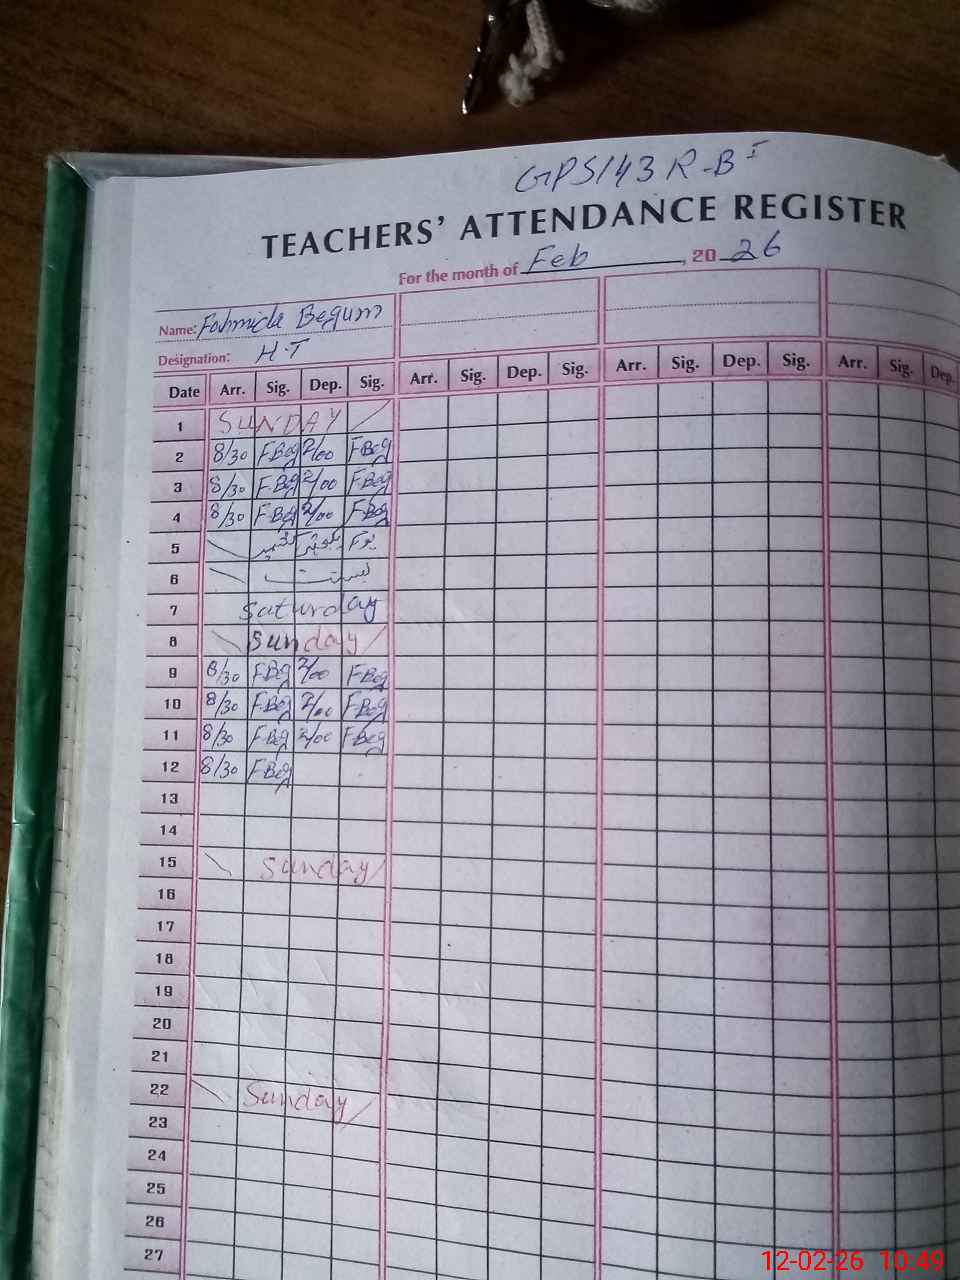 GPS 143 R-B I
TEACHERS' ATTENDANCE REGISTER
For the month of Feb, 2026
Name: Fahmida Begum
Designation: H.T
Date Arr. Sig. Dep. Sig. Arr. Sig. Dep. Sig. Arr. Sig. Dep. Sig. Arr. Sig. Dep.
1 SUNDAY
2 8/30 FBeg 2/00 FBeg
3 8/30 FBeg 2/00 FBeg
4 8/30 FBeg 2/00 FBeg
5 یوم یکجہتی کشمیر
6 بسنت
7 Saturday
8 Sunday
9 8/30 FBeg 2/00 FBeg
10 8/30 FBeg 2/00 FBeg
11 8/30 FBeg 2/00 FBeg
12 8/30 FBeg
13
14
15 Sunday
16
17
18
19
20
21
22 Sunday
23
24
25
26
27
12-02-26 10:49